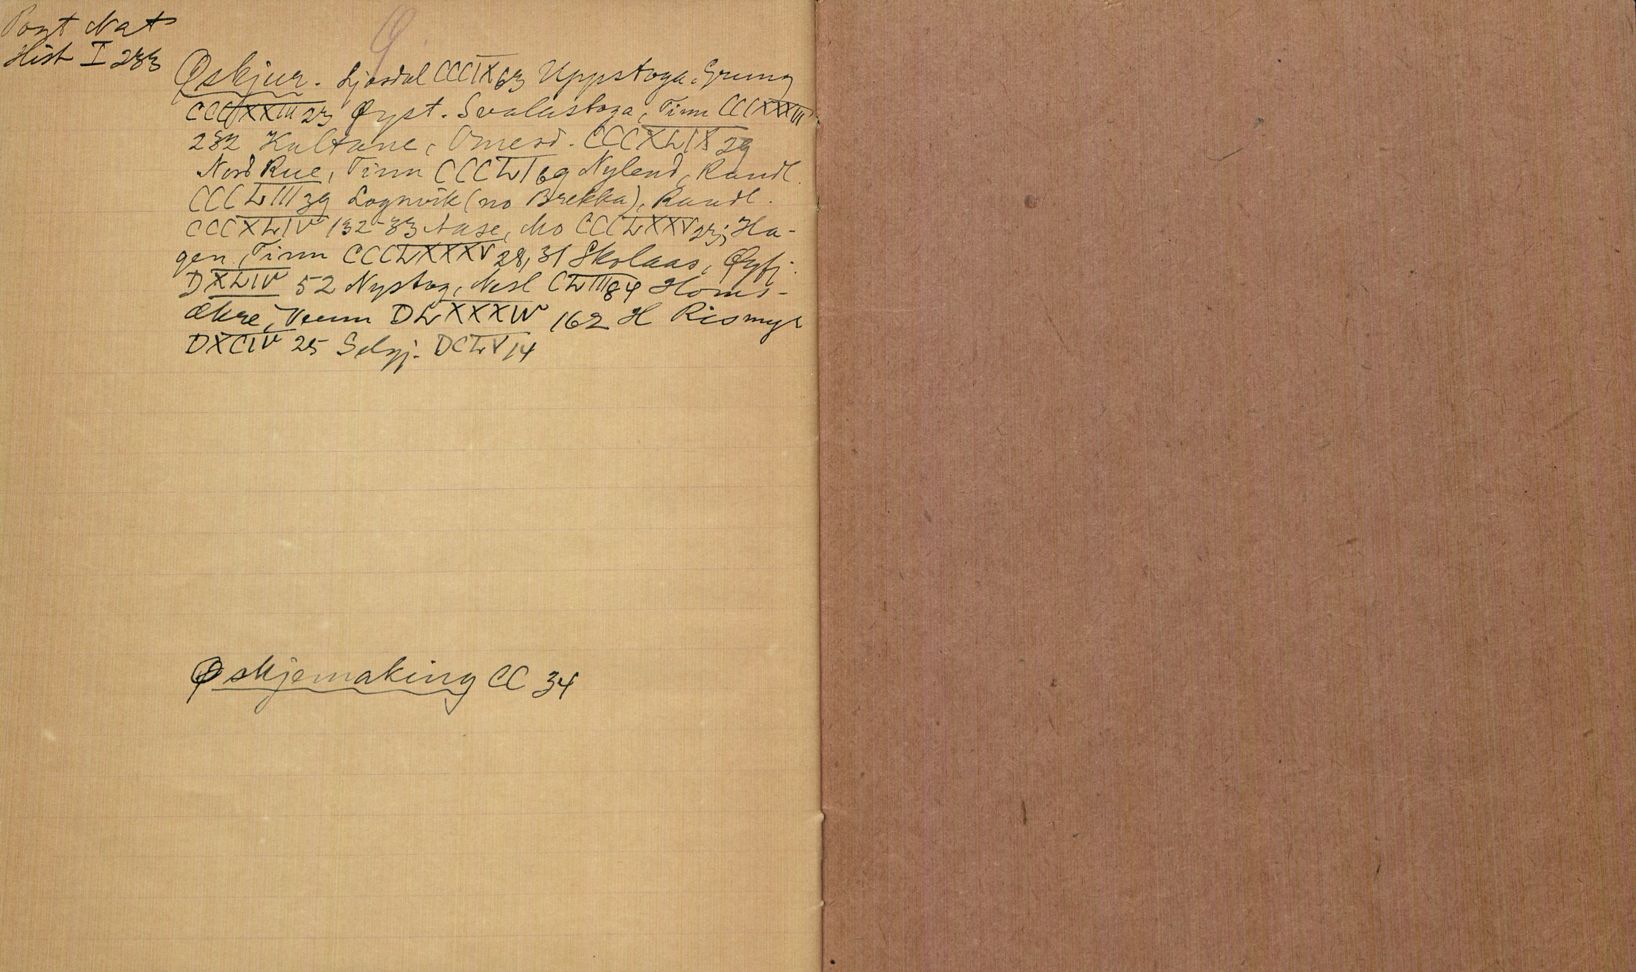 Pont Nat
Hist I 283
Ø.
Øskjur. Ljosdal CCCIX 63 Uppstoga, Grung
CCCXXXIII 23 Øyst. Svalastoga, Tinn CCCXXXIII
282 Kultane, Omesd. CCCXLIX 29
Nord Rue, Tinn CCCLI 69 Nyland, Raudl.
CCCLIII 39 Lognvik (no Brekka), Raudl.
CCCXLIV 132-33 Aase, Mo CCCLXXV 23; Ha-
gen, Tinn CCCLXXXV 28, 31 Skolaas, Øyfj.
DXLIV 52 Nystog, Nesl CLIII 84 Homs-
økre, Veum DLXXXIV 162 H Rismyr
DXCIV 25 Selgj. DCLV 14
Øskjemaking CC 34